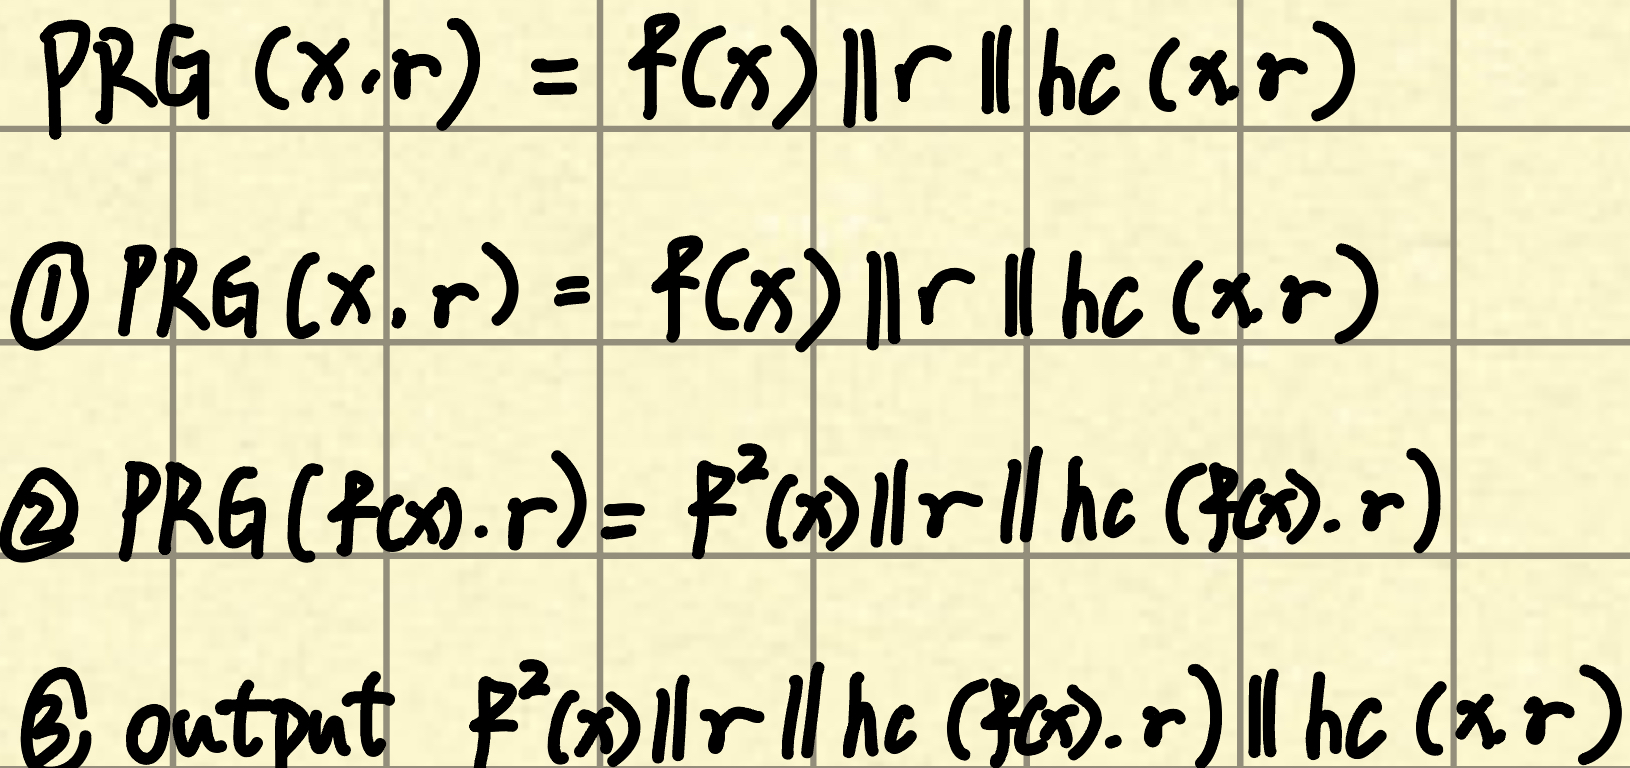 PRG (x.r) = f(x) || r || hc (x,r)
① PRG (x, r) = f(x) || r || hc (x,r)
② PRG (f(x). r) = f²(x) || r || hc (f(x). r)
③ output f²(x) || r || hc (f(x). r) || hc (x,r)